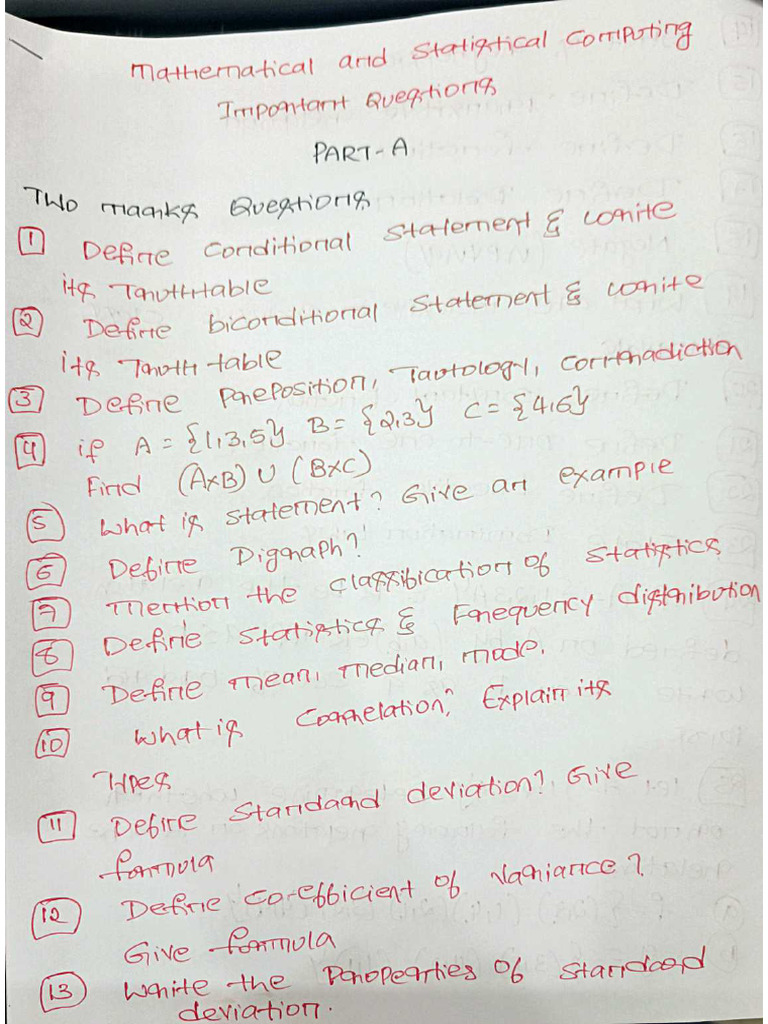 Mathematical and Statistical Computing
Important Questions
PART-A
Two marks Questions
1 Define Conditional Statement & write
its Truth table
2 Define biconditional Statement & write
its Truth table
3 Define Preposition, Tautology, Contradiction
4 if A = {1,3,5} B = {2,3} C = {4,6}
Find (A×B) ∪ (B×C)
5 What is statement? Give an example
6 Define Digraph?
7 Mention the classification of statistics
8 Define Statistics & Frequency distribution
9 Define mean, median, mode.
10 What is Correlation? Explain its
Types
11 Define Standard deviation? Give
formula
12 Define Co-efficient of Variance?
Give formula
13 Write the Properties of Standard
deviation.